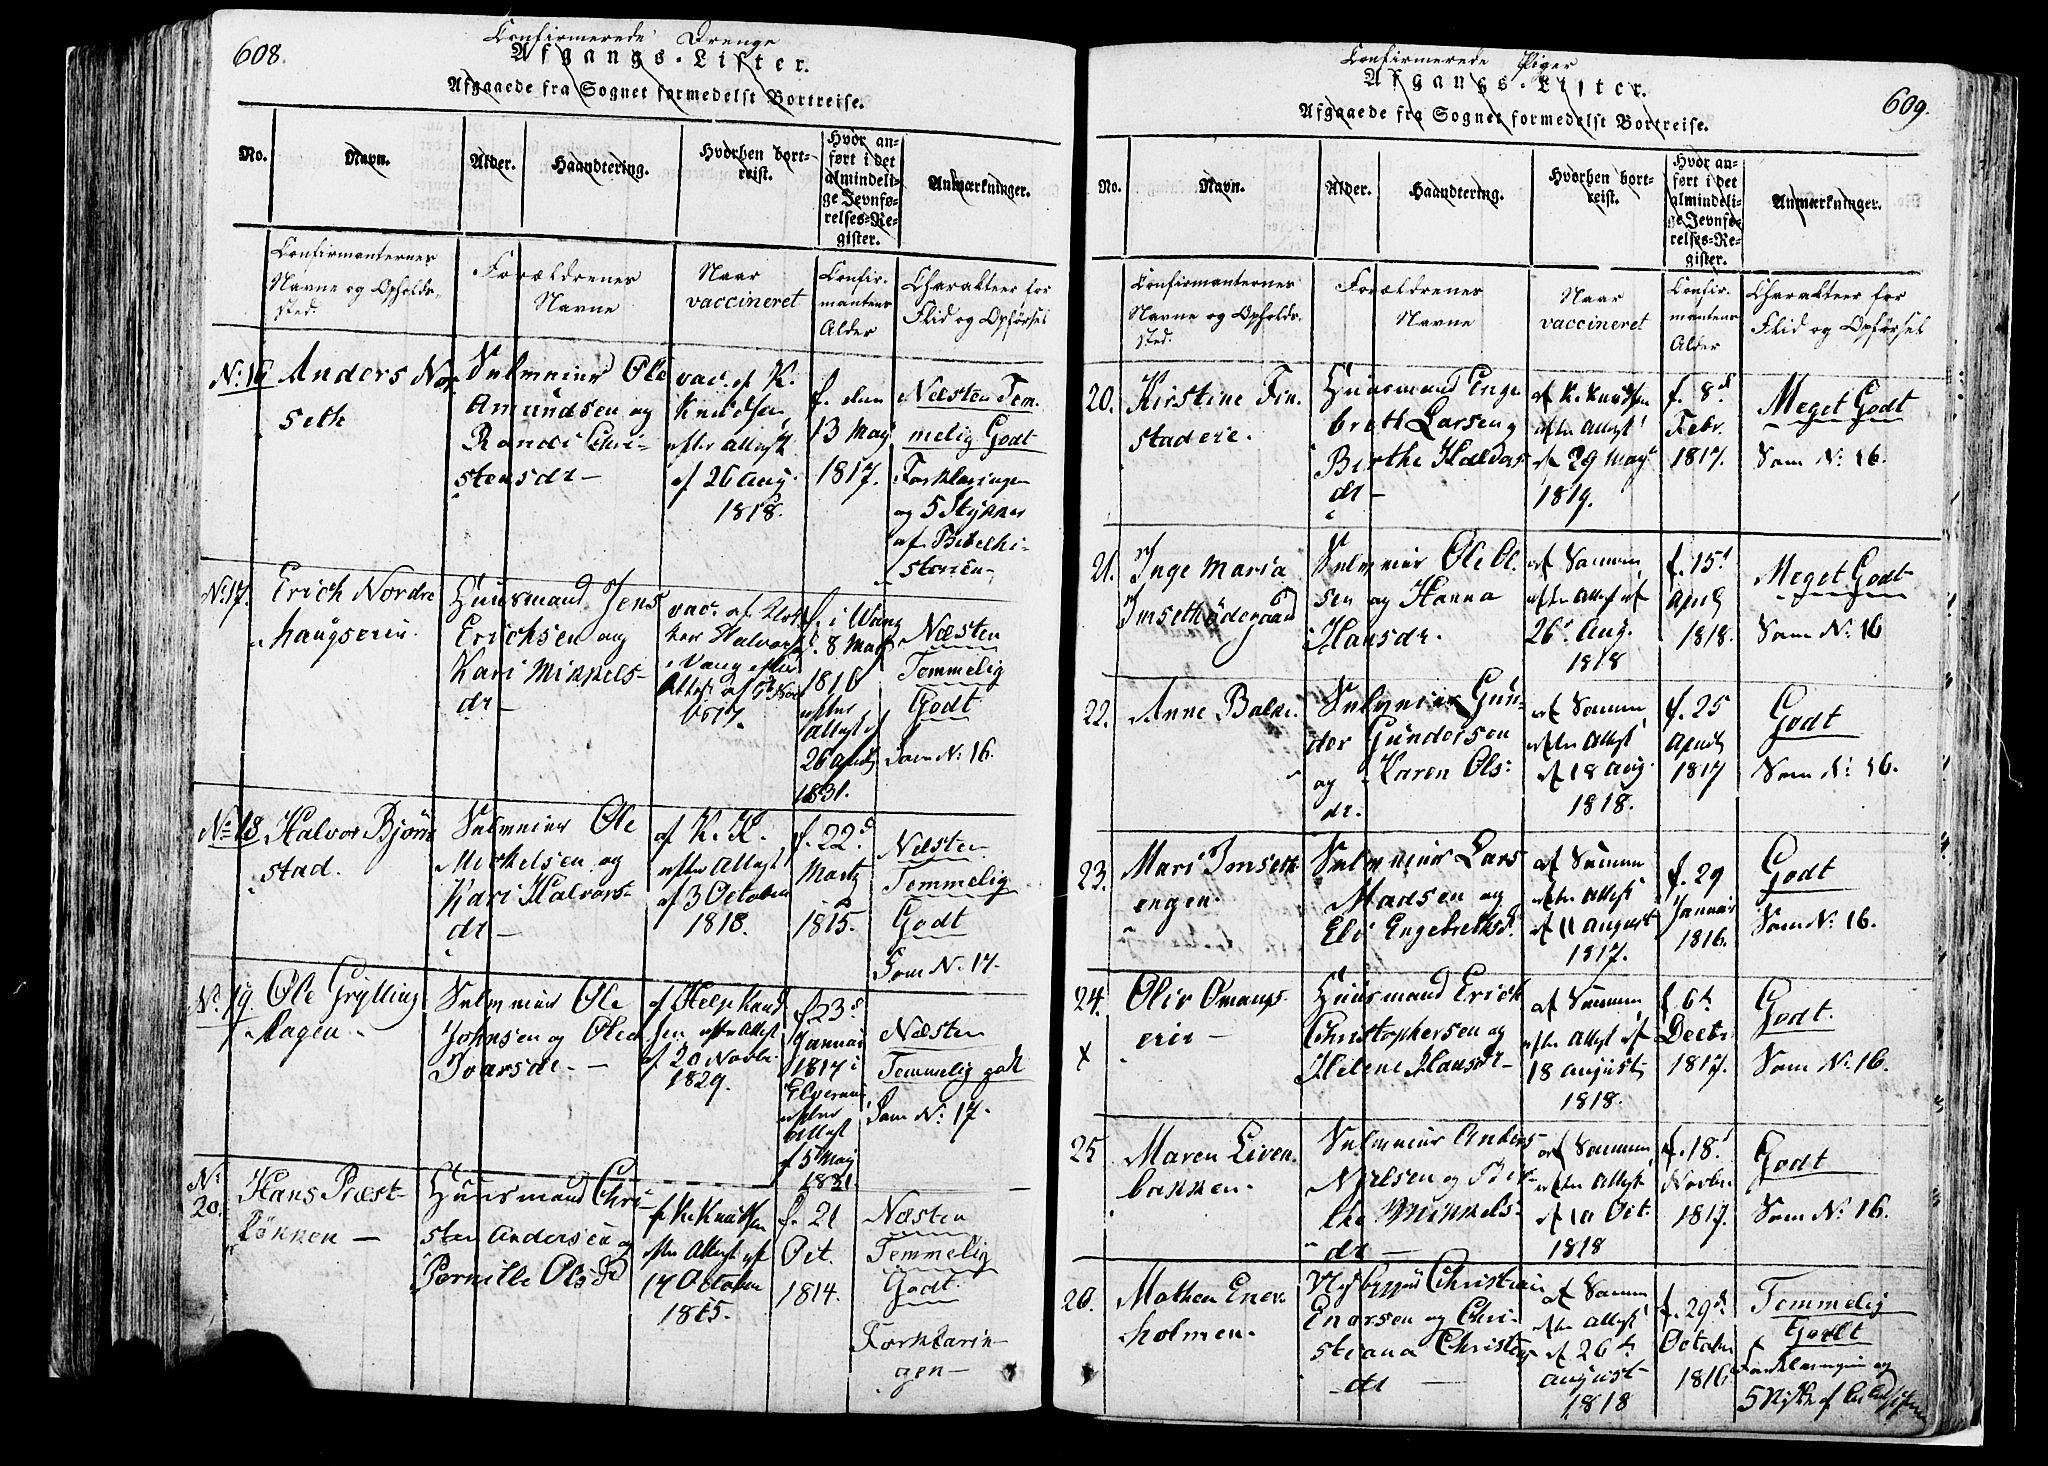 608.
Confirmerede Drenge
Afgangs-Lister.
Afgaaede fra Sognet formedelst Bortreise.
No.
Navn.
Alder.
Haandtering.
Hvorhen bort-
reist.
Hvor an-
ført i det
almindeli-
ge Jevnfø-
relses-Re-
gister.
Anmærkninger.
Confirmanternes
Navne og Opholds-
sted.
Forældrenes
Navne
Naar
vaccineret
Confir-
mantens
Alder
Charakteer for
Flid og Opförsel
No. 16
Anders Nor-
seth
Selveier Ole
Amundsen og
Randi Chri-
stensdr-
vac. af K.
Knudsen
efter Attest
af 26 Aug.
1818.
f. den
13 May
1817.
Næsten Tem-
melig Godt
Forklaringen
og 5 Stykker
af Bibelhi-
storien-
No. 17.
Erich Nordre
haugseie.
Huusmand Jens
Erichsen og
Kari Mikkels-
dr-
vac. af
i Vang efter
Attest af
1817.
f. i Vang
8 Mart
1816
efter
Attest af
26 April
1831.
Næsten
Temmelig
Godt
Som No. 16.
No. 18
Halvor Bjørn-
stad.
Selveier Ole
Mickelsen og
Kari Halvors-
dr-
af K. K.
efter Attest
af 3 October
1818.
f. 22d
Marts
1815.
Næsten
Temmelig
Godt
Som No. 17.
No. 19
Ole Grylling-
hagen-
Selveier Ole
Johnsen og Olea
Ivarsdr.-
af Helge Knud-
sen efter Attest
af 20 Novbr.
1829.
f. 23d
Januar
1817 i
Elverum
efter
Attest
af 5 May
1831.
Næsten
Temmelig godt
Som No. 17.
No.
20.
Hans Præst-
können-
Huusmand Chri-
sten Andersen og
Pernille Olsdr
af K. Knudsen
efter Attest af
14 October
1815.
f. 21
Oct.
1814.
Næsten
Temmelig
Godt
Forklarin-
gen-
609.
Confirmerede Piger
Afgangs-Lister.
Afgaaede fra Sognet formedelst Bortreise.
No.
Navn.
Alder.
Haandtering.
Hvorhen bort-
reist.
Hvor an-
ført i det
almindeli-
ge Jevnfø-
relses-Re-
gister.
Anmærkninger.
Confirmanternes
Navne og Opholds-
sted.
Forældrenes
Navne
Naar
vaccineret
Confir-
mantens
Alder
Charakteer for
Flid og Opførsel
20.
Kirstine Fin-
stadeie.
Huusmand Enge-
breth Larsen og
Birthe Haldors
dr-
af K. Knudsen
efter Attest
af 29 May
1819.
f. 8d
Febr.
1817.
Meget Godt
Som No. 16.
21.
Inge Maria
Imsethödegaard
Selveier Ole Ol-
sen og Hanna
Hansdr.
af Samme
efter Attest af
26d Aug.
1818
f. 15d
April
1818.
Meget Godt
Som No. 16
22.
Anne Balke.
Selveier Gun-
der Gundersen
og Karen Ols-
dr.
af Samme
efter Attest
af 18 Aug.
1818.
f. 25
April
1817
Godt
Som No. 16.
23.
Mari Imseth-
engen.
Selveier Lars
Madsen og
Eli Engebrethsd.
af Samme
efter Attest
af 11 August
1817.
f. 29
Januar
1816.
Godt
Som No. 16.
24.
x
Oliv
eie-
Huusmand Erich
Christophersen og
Helene Hansdr-
af Samme
efter Attest af
18 August
1818.
f. 6te
Decbr
1817.
Godt.
Som No. 16.
25
Maren Lien-
bakken.
Selveier Anders
Nielsen og Bir-
the Mikkels-
dr-
af Samme
efter Attest
af 10 Oct.
1818
f. 18d
Novbr.
1817.
Godt
Som No. 16.
26.
Mathea Ener-
holmen.
Christian
Enersen og Chri-
stiana Christens
dr-
af Samme
efter Attest
af 26de
August
1818
f. 29d
October
1816
Temmelig
Godt
Forklaringen og
5 Stykker af